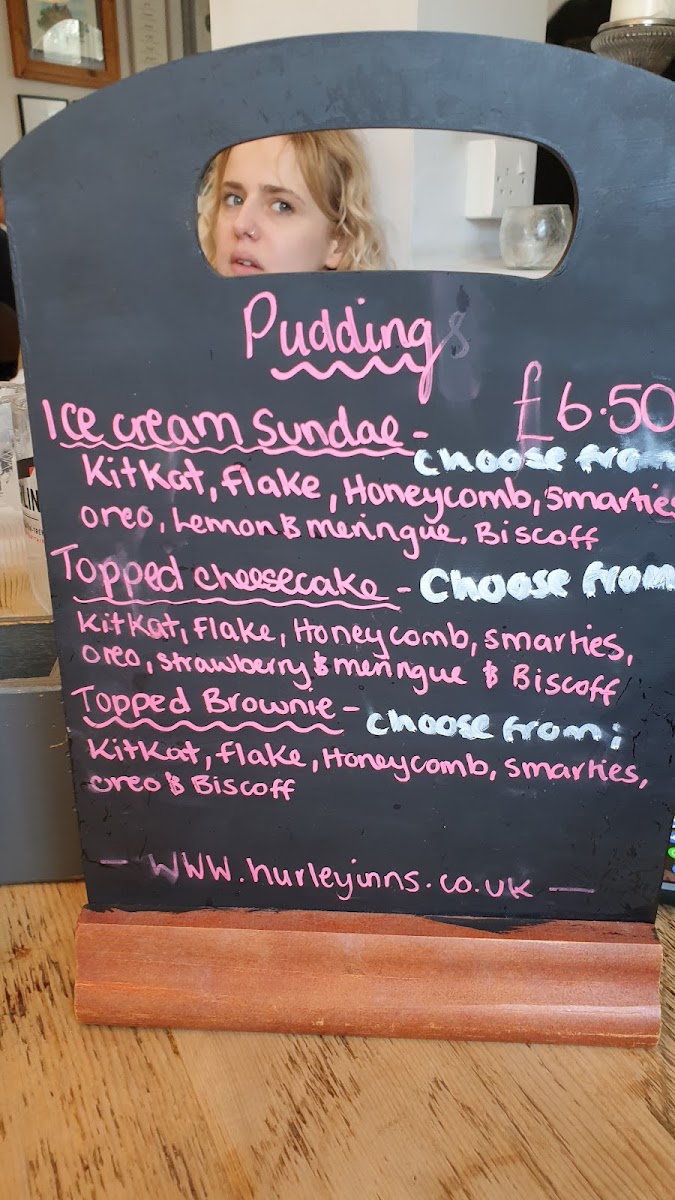 Puddings
£6.50
Ice cream Sundae -
choose from
KitKat, flake, Honeycomb, smarties
oreo, Lemon & meringue, Biscoff
Topped cheesecake - Choose from
KitKat, flake, Honeycomb, smarties,
oreo, strawberry & meringue & Biscoff
Topped Brownie - choose from;
KitKat, flake, Honeycomb, smarties,
oreo & Biscoff
— www.hurleyinns.co.uk —